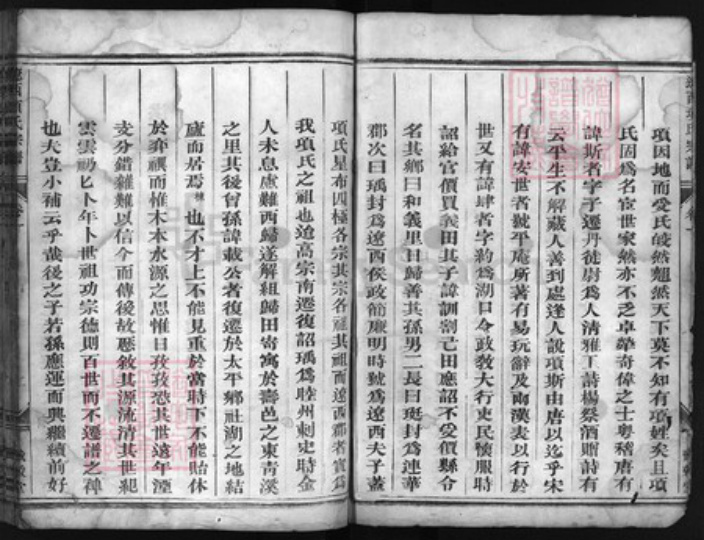 項因地而受氏皎然翹然天下莫不知有項姓矣且項
氏固爲名宦世家然亦不乏卓犖奇偉之士粵稽唐有
諱斯者字子遷丹徒尉爲人清雅工詩楊祭酒贈詩有
云平生不解藏人善到處逢人說項斯由唐以迄乎宋
有諱安世者號平庵所著有易玩辭及兩漢表以行於
世又有諱肆者字約爲湖口令政教大行吏民懷服時
詔給官價買義田其子諱訓割己田應詔不受價縣令
名其鄉曰和義里曰歸善其孫男二長曰珽封爲連華
郡次曰瑀封爲遼西侯政簡廉明時號爲遼西夫子蓋
項氏星布四極各宗其宗各祖其祖而遼西郡者實爲
我項氏之祖也迨高宗南遷復詔瑀爲睦州刺史時金
人未息慮難西歸遂解組歸田寄寓於壽邑之東青溪
之里其後曾孫諱載公者復遷於太平鄉社湖之地結
廬而居焉 也不才上不能見重於當時下不能貽休
於弈禩而惟木本水源之思惟日孜孜恐其世遠年湮
支分錯雜難以信今而傳後故聊敘其源流清其世紀
雲雲礽匕卜年卜世祖功宗德則百世而不遷譜之裨
也夫豈小補云乎哉後之子若孫應運而興繼續前好